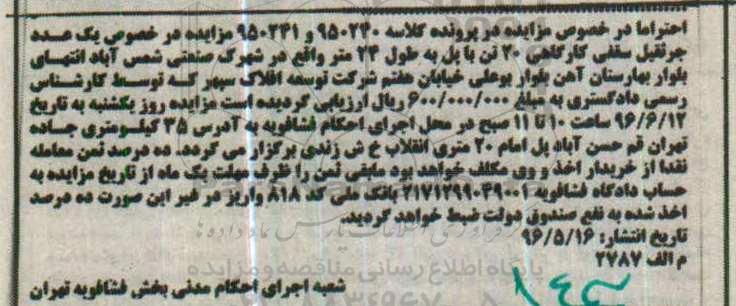 احتراما در خصوص مزایده در پرونده کلاسه ۹۵۰۲۴۰ و ۹۵۰۲۴۱ مزایده در خصوص یک عدد
جرثقیل سقفی کارگاهی ۲۰ تن با پل به طول ۲۴ متر واقع در شهرک صنعتی شمس آباد انتهای
بلوار بهارستان آهن بلوار بوعلی خیابان هفتم شرکت توسعه افلاک سپهر که توسط کارشناس
رسمی دادگستری به مبلغ ۶۰۰/۰۰۰/۰۰۰ ریال ارزیابی گردیده است مزایده روز یکشنبه به تاریخ
۹۶/۶/۱۲ ساعت ۱۰ تا ۱۱ صبح در محل اجرای احکام فشافویه به آدرس ۳۵ کیلومتری جاده
تهران قم حسن آباد پل امام ۲۰ متری انقلاب خ ش زندی برگزار می گردد. ده درصد ثمن معامله
نقدا از خریدار اخذ و وی مکلف خواهد بود مابقی ثمن را ظرف مهلت یک ماه از تاریخ مزایده به
حساب دادگاه فشافویه ۲۱۷۱۲۹۹۰۴۹۰۰۱ بانک ملی کد ۸۱۸ واریز در غیر این صورت ده درصد
اخذ شده به نفع صندوق دولت ضبط خواهد گردید.
تاریخ انتشار: ۹۶/۵/۱۶
م الف ۲۷۸۷
پایگاه اطلاع رسانی مناقصه و مزایده
شعبه اجرای احکام مدنی بخش فشافویه تهران